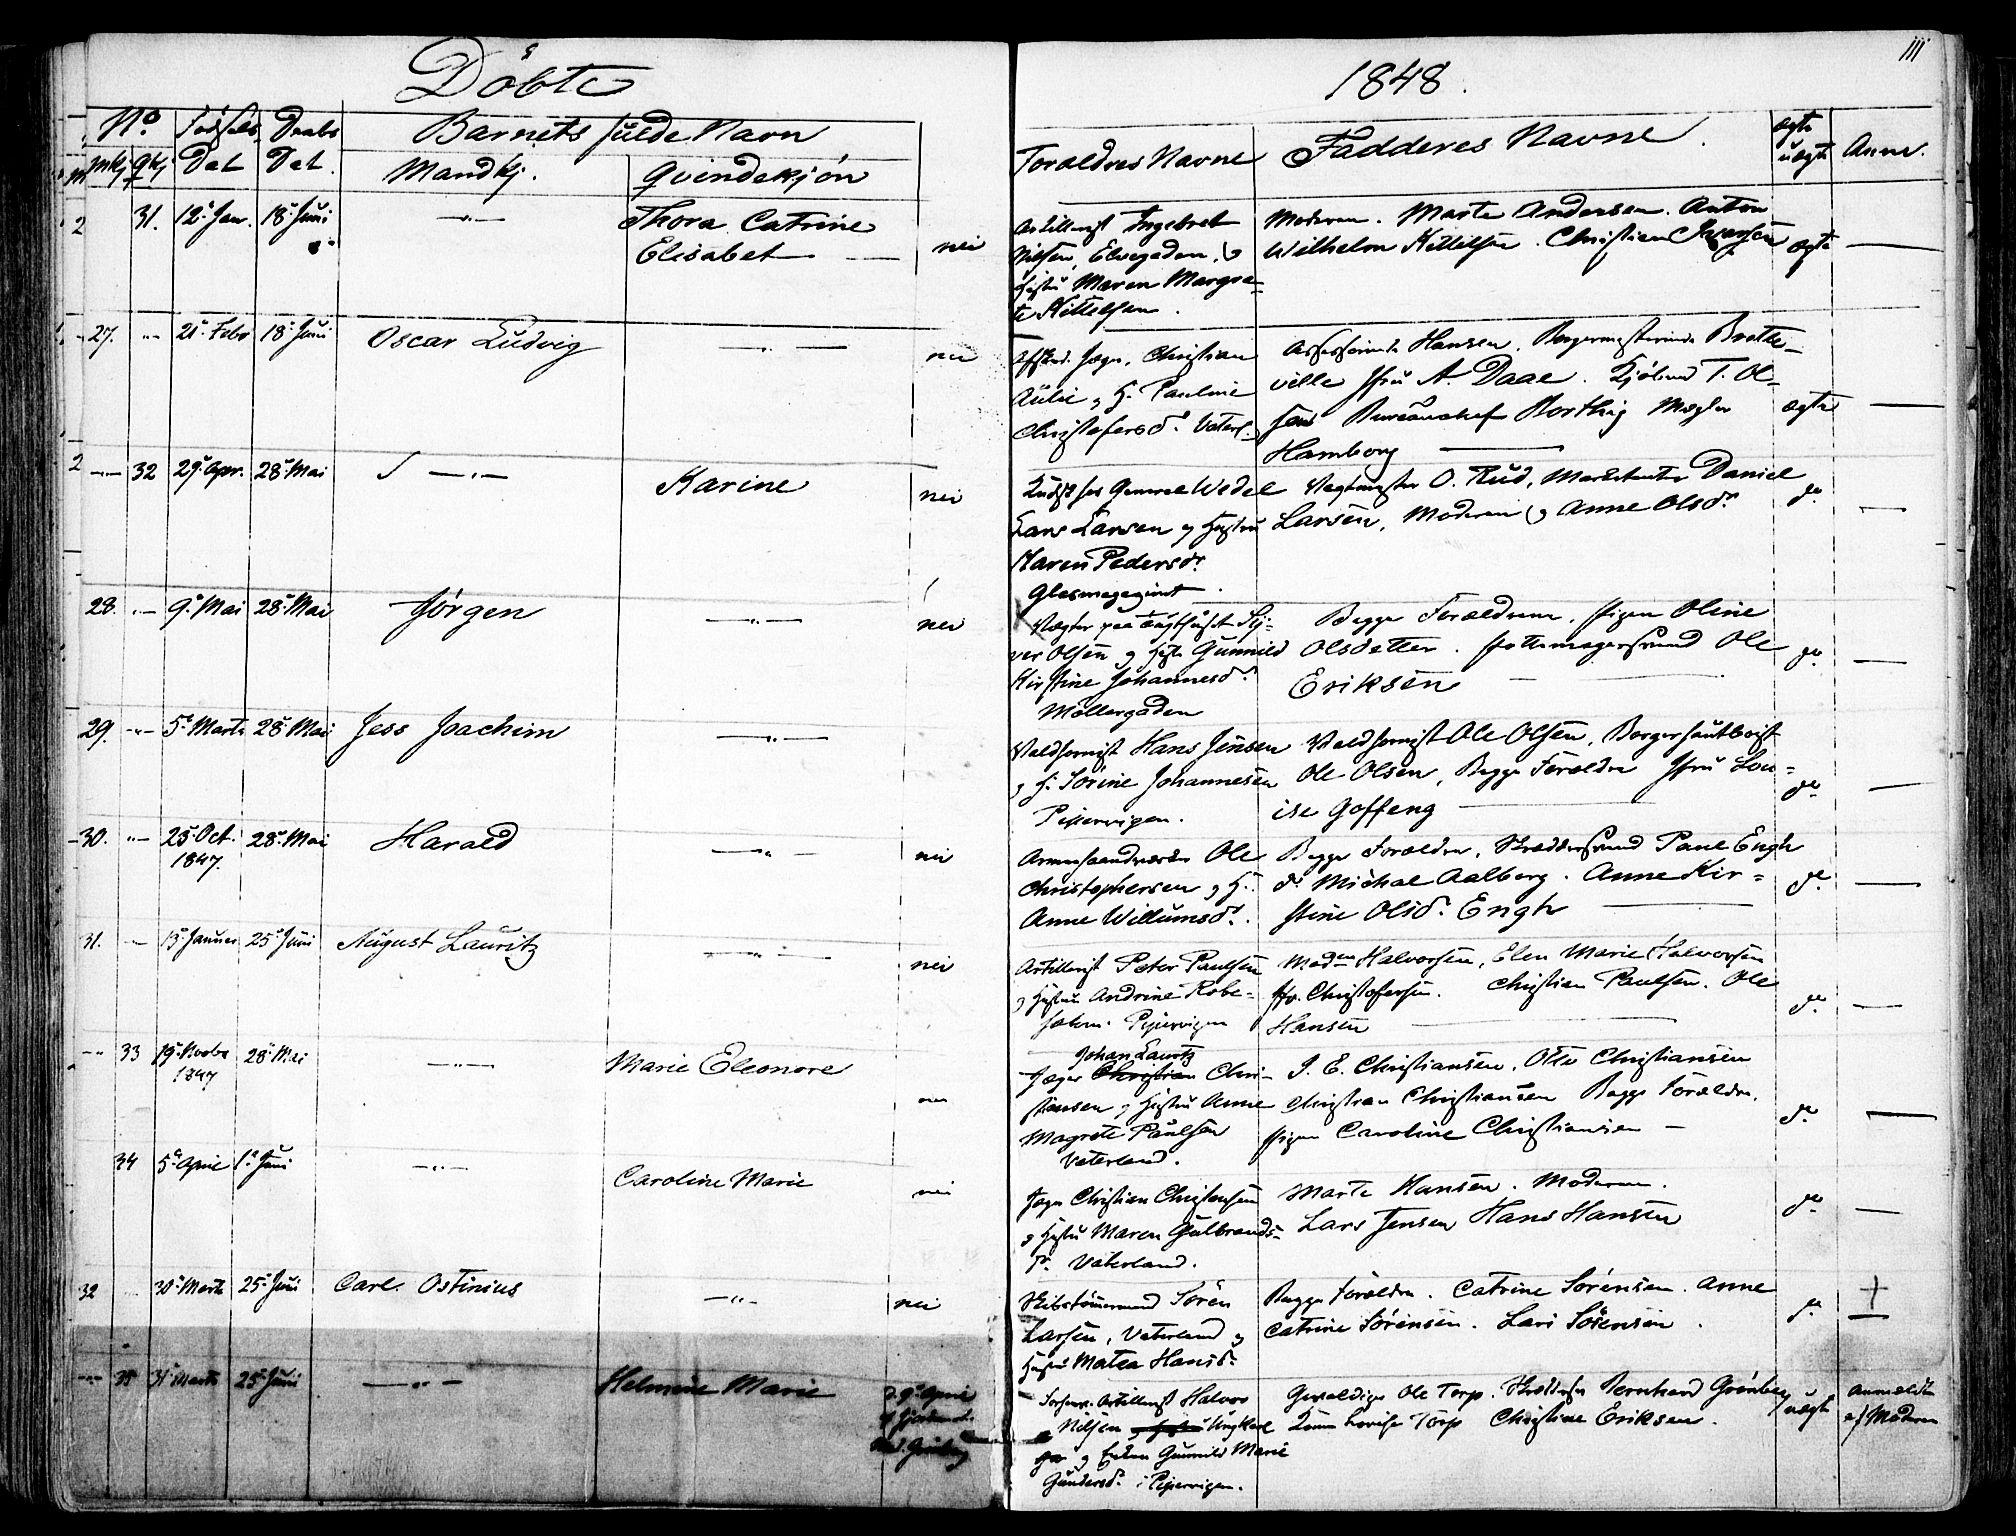 Döbte
1848.
111
No
Fødsels
Daabs
Barnets fulde Navn
Forældres Navne
Fadderes Navne
ægte
uægte
Anm.
Mkj
Qkj
Dat
Dat.
Mandkj.
Qvindekjøn
31. 12te Jan. 18de Juni
Thora Catrine
Elisabet
nei
Artillerist Ingebret
Nilsen, Elvegaden, og
Hustru Maren Margre-
te Kittelsen.
Moderen. Marte Andersen. Anton
Wilhelm Kittilsen. Christian Iversen
ægte
27. 21de Febr 18de Juni
Oscar Ludvig
nei
Afsked. Jæger Christian
Aulie og H. Pauline
Christofersd. Vaterl.
Assessorinde Hansen, Borgermesterinde Brette-
ville Jfru A. Daae. Kjøbmd T. Ol-
sen Bureauchef Borthig Mægler
Hamborg
ægte
32 29de Apr. 28de Mai
Karine
nei
Kudsk hos General Wedel
Lars Larsen og Hustru
Maren Pedersdr
Glasmagazinet.
Vagtmester O. Rud, Marketenter Daniel
Larsen, Moderen og Anne Olsdr
do
28. 9de Mai 28de Mai
Jörgen
nei
Vægter paa Tugthuset Sy-
ver Olsen og Hustr Gunnild
Kirstine Johannesdr
Möllergaden
Begge Forældrene, Pigen Oline
Olsdatter. Pottemagersvend Ole
Eriksen
do
29. 5te Marts 28de Mai
Jess Joachim
Valdhornist Hans Jensen
og H. Sörine Johannesen
Pipervigen.
Valdhornist Ole Olsen, Borgerhautboist
Ole Olsen, Begge Forældre Jfru Lou-
ise Goffeng
do
30. 28de Oct. 28de Mai
1847.
Harald
nei
Ole
Christophersen og H.
Anne Willumsdr.
Begge Forældre, Skreddersvend Paul Engh
do Michal Aalberg. Anne Kir-
stine Olsdr Engh
do
31. 13de Januar 25de Juni
August Lauritz
nei
Artillerist Peter Paulsen
og Hustru Andrine Kobe-
Pipervigen
Madm Halvorsen, Elen Marie Halvorsen
Christofersen. Christian Paulsen. Ole
Hansen
do
33 19de Novbr 28de Mai
1847
Marie Eleonore
nei
Johan Lauritz
Jæger Christian Chri-
stiansen og Hustru Anne
Magrete Paulsen
Vaterland.
J. E. Christiansen, Otto Christiansen
Christian Christiansen Begge Forældre,
Pigen Caroline Christiansen
do
34 5te April 1ste Juni
Caroline Marie
nei
Jæger Christian Christensen
og Hustru Maren Gulbrands-
dr. Vaterland.
Marte Hansen. Moderen.
Lars Jensen Hans Hansen
do
32 30te Marts 25de Juni
Carl Ostinius
nei
Skibstømmermd Sören
Larsen, Vaterland og
Hustru Matea Hansdr
Begge Forældre. Catrine Sörensen. Anne
Catrine Sörensen. Lars Sörensen.
do
35 31te Marts 25de Juni
Helmine Marie
9de April
Artillerist Halvor
Nilsen Ungkarl
og Enken Gunnild Marie
Gundersdr i Pipervigen.
Gevaldiger Ole Torp. Bernhard Grönberg
Lovise Torp Christine Eriksen.
uægte
Anmeldt
af Moderen